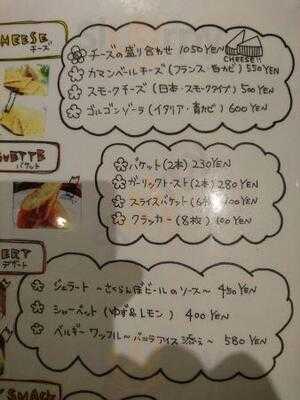 CHEESE
チーズ
チーズの盛り合わせ 1050YEN
CHEESE!!
カマンベールチーズ (フランス・白カビ) 550YEN
スモークチーズ (日本・スモークタイプ) 500YEN
ゴルゴンゾーラ (イタリア・青カビ) 600YEN
バケット
バケット (2本) 230YEN
ガーリックトースト (2本) 280YEN
スライスバケット (6枚) 100YEN
クラッカー (8枚) 100YEN
デザート
ジェラート ～さくらんぼビールのソース～ 450YEN
シャーベット (ゆず&レモン) 400YEN
ベルギーワッフル～バニラアイス添え～ 580YEN